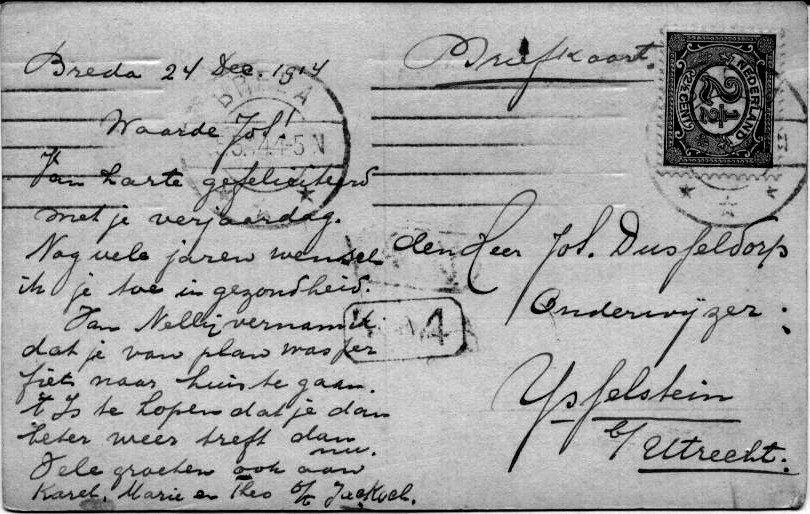 Breda 24 Dec. 1914
Waarde Joh!
Van harte gefeliciteerd
met je verjaardag.
Nog vele jaren wensch
ik je toe in gezondheid.
Van Nelly vernam ik
dat je van plan was per
fiets naar huis te gaan.
't Is te hopen dat je dan
beter weer treft dan
nu.
Vele groeten ook aan
Karel, Marie en Theo
Briefkaart.
den Heer Joh. Dusseldorp
Onderwijzer.
Ysselstein
b/ Utrecht.
NEDERLAND
2½
2½ CENT
BREDA
4-5 N
4